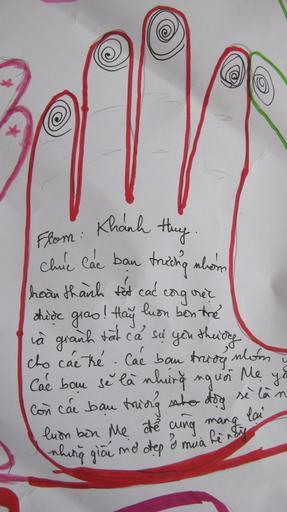 From: Khánh Huy.
Chúc các bạn trưởng nhóm
hoàn thành tốt các công việc
được giao! Hãy luôn bên trẻ
và giành tất cả sự yêu thương
cho các trẻ. Các bạn trưởng nhóm
Các bạn sẽ là những người Mẹ
Còn các bạn trưởng sẽ là
luôn bên Mẹ để cùng mang lại
những giấc mơ đẹp ở mùa hè này